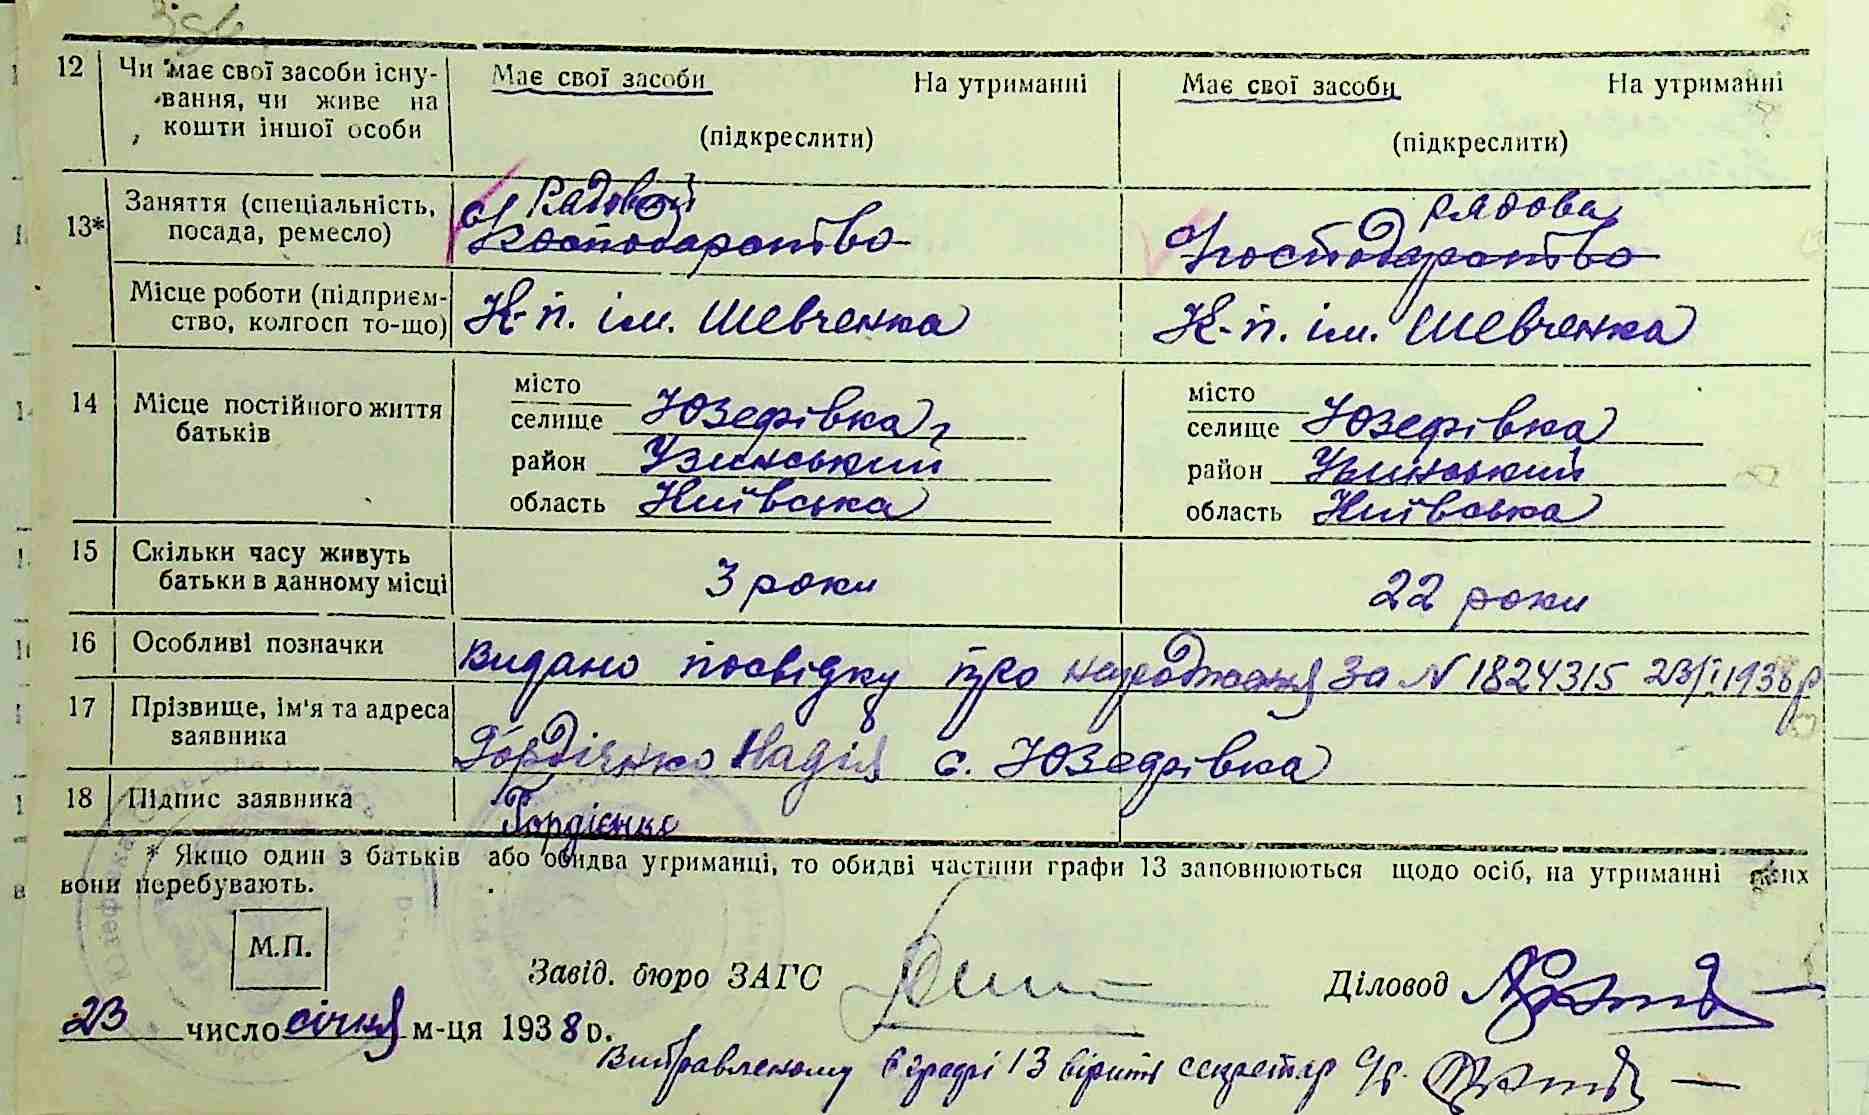 12 Чи має свої засоби існу-
вання, чи живе на
кошти іншої особи
Має свої засоби На утриманні
(підкреслити)
Має свої засоби На утриманні
(підкреслити)
13* Заняття (спеціальність,
посада, ремесло)
Рядовой
Господарство
рядова
Господарство
Місце роботи (підприєм-
ство, колгосп то-що)
К-п. ім. Шевченка
К-п. ім. Шевченка
14 Місце постійного життя
батьків
місто
селище Юзефівка
район Узинський
область Київська
місто
селище Юзефівка
район Узинський
область Київська
15 Скільки часу живуть
батьки в данному місці
3 роки
22 роки
16 Особливі позначки
Видано посвідку про народження за N 1824315 23/I 1938 р
17 Прізвище, ім'я та адреса
заявника
Гордієнко Надія с. Юзефівка
18 Підпис заявника
Гордієнко
* Якщо один з батьків або обидва утриманці, то обидві частини графи 13 заповнюються щодо осіб, на утриманні яких
вони перебувають.
М.П.
Завід. бюро ЗАГС
Діловод
23 число січня м-ця 1938 р.
Виправленому в графі 13 вірить секретар с/р.